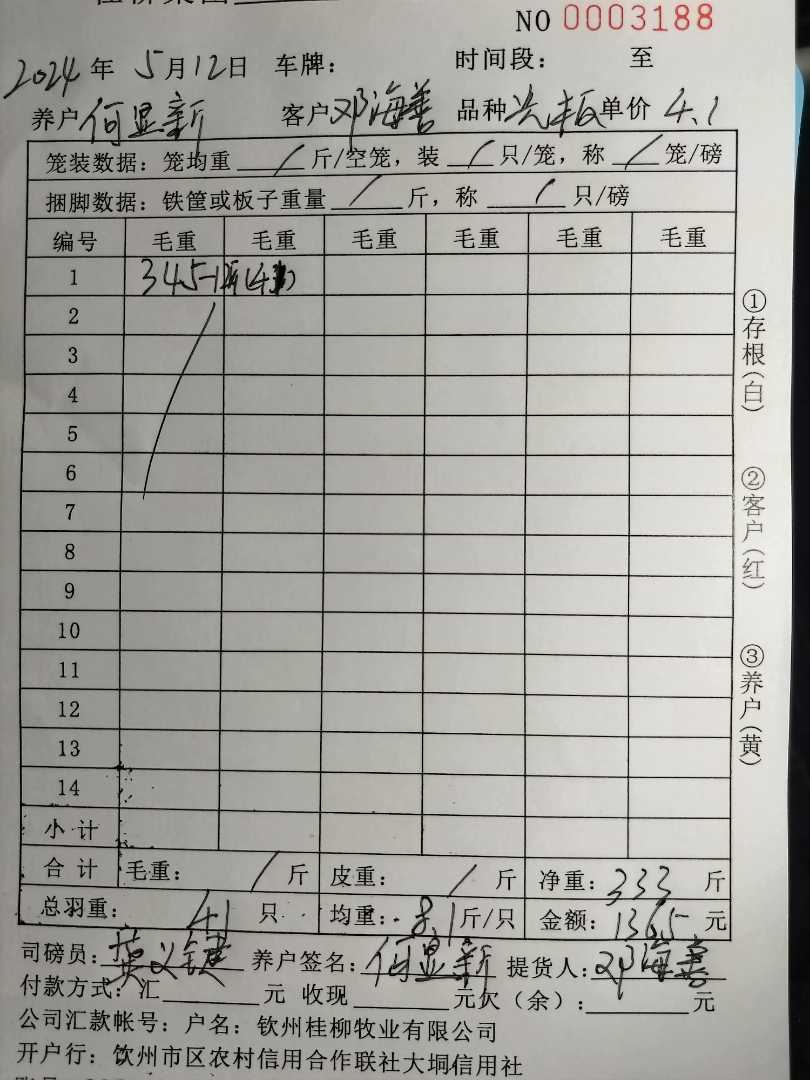 NO 0003188
2024年 5月12日 车牌: 时间段: 至
养户 何显新 客户 邓海善 品种 单价 4.1
笼装数据: 笼均重 / 斤/空笼, 装 / 只/笼, 称 / 笼/磅
捆脚数据: 铁筐或板子重量 / 斤, 称 / 只/磅
编号 毛重 毛重 毛重 毛重 毛重 毛重
1 345-12斤(41)
2
3
4
5
6
7
8
9
10
11
12
13
14
小计
合计 毛重: / 斤 皮重: / 斤 净重: 333 斤
总羽重: 41 只 均重: 8.1 斤/只 金额: 1365 元
司磅员: 养户签名: 何显新 提货人: 邓海善
付款方式: 汇 元 收现 元欠(余): 元
公司汇款帐号: 户名: 钦州桂柳牧业有限公司
开户行: 饮州市区农村信用合作联社大垌信用社
①存根(白)
②客户(红)
③养户(黄)